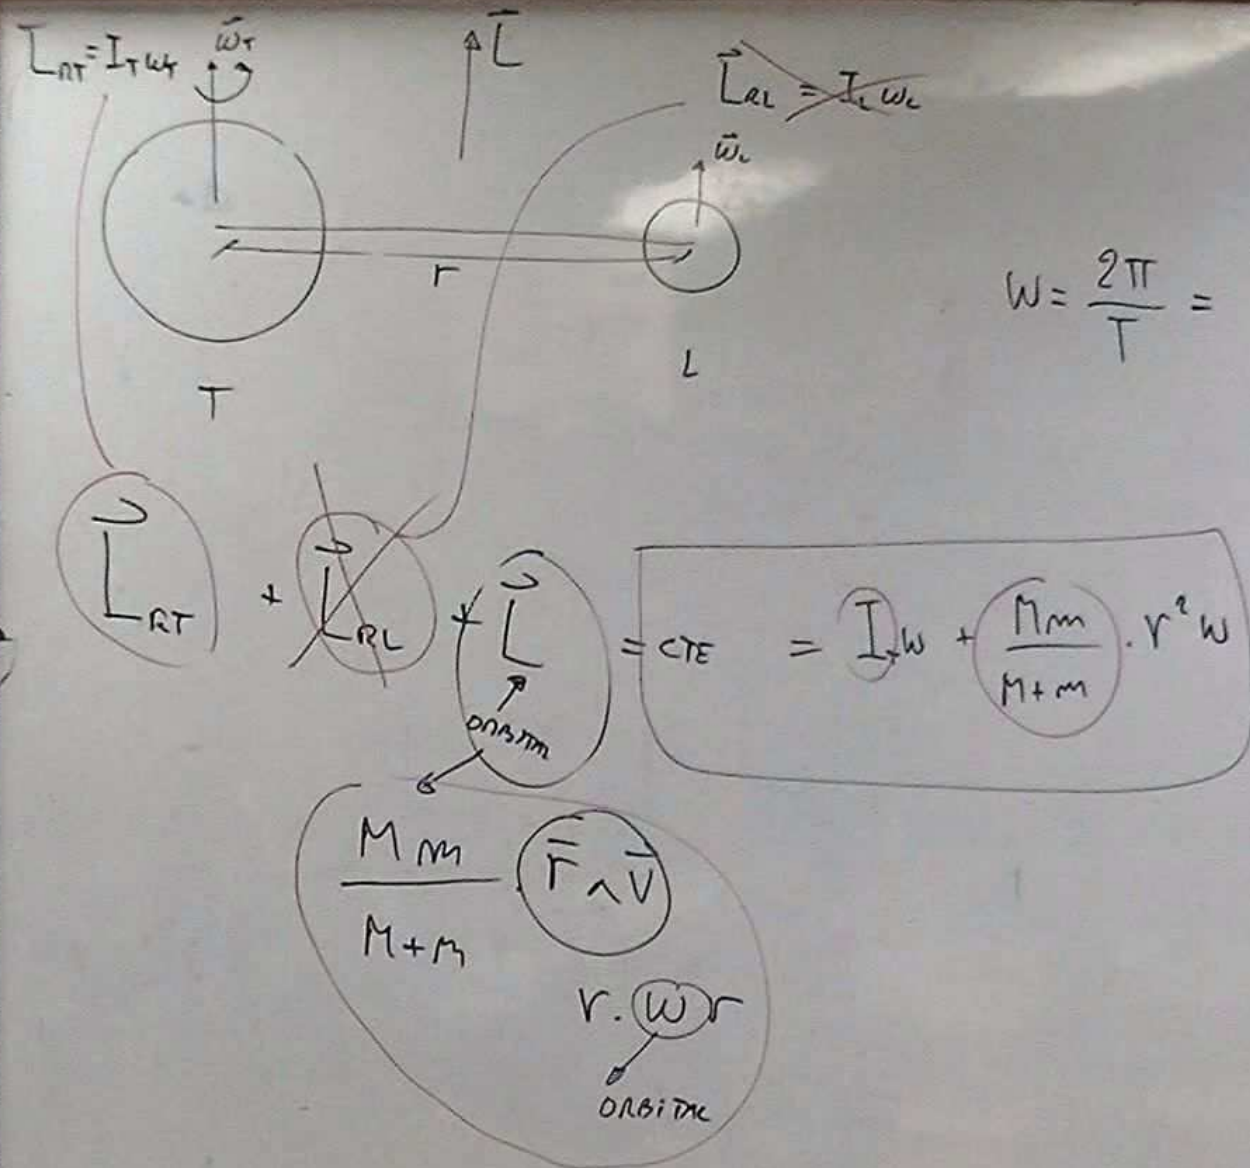 L⃗_RT = I_T ω_T
ω⃗_T
L⃗
L⃗_RL = I_L ω_L
ω⃗_L
r
W = 2π/T =
T
L
L⃗_RT + L⃗_RL + L⃗ = CTE = I_T ω + Mm/(M+m) · r² ω
ORBITAL
Mm/(M+m) · r̄ ∧ v̄
r · ω r
ORBITAL